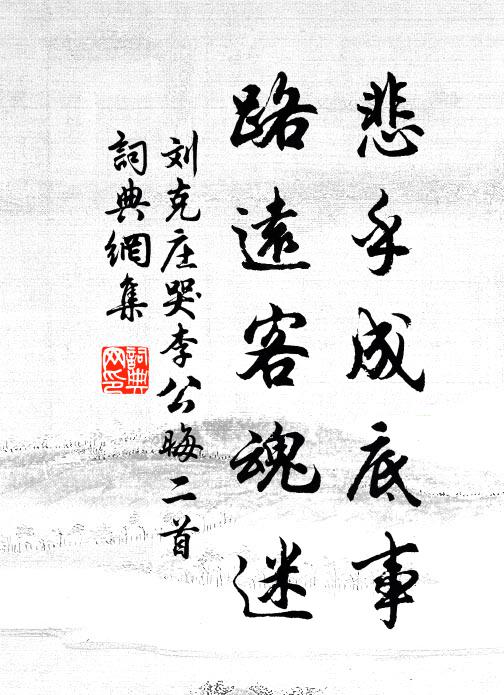 悲乎成底事
路遠客魂迷
刘克庄哭李公晦二首
詞典網集
詞典網印